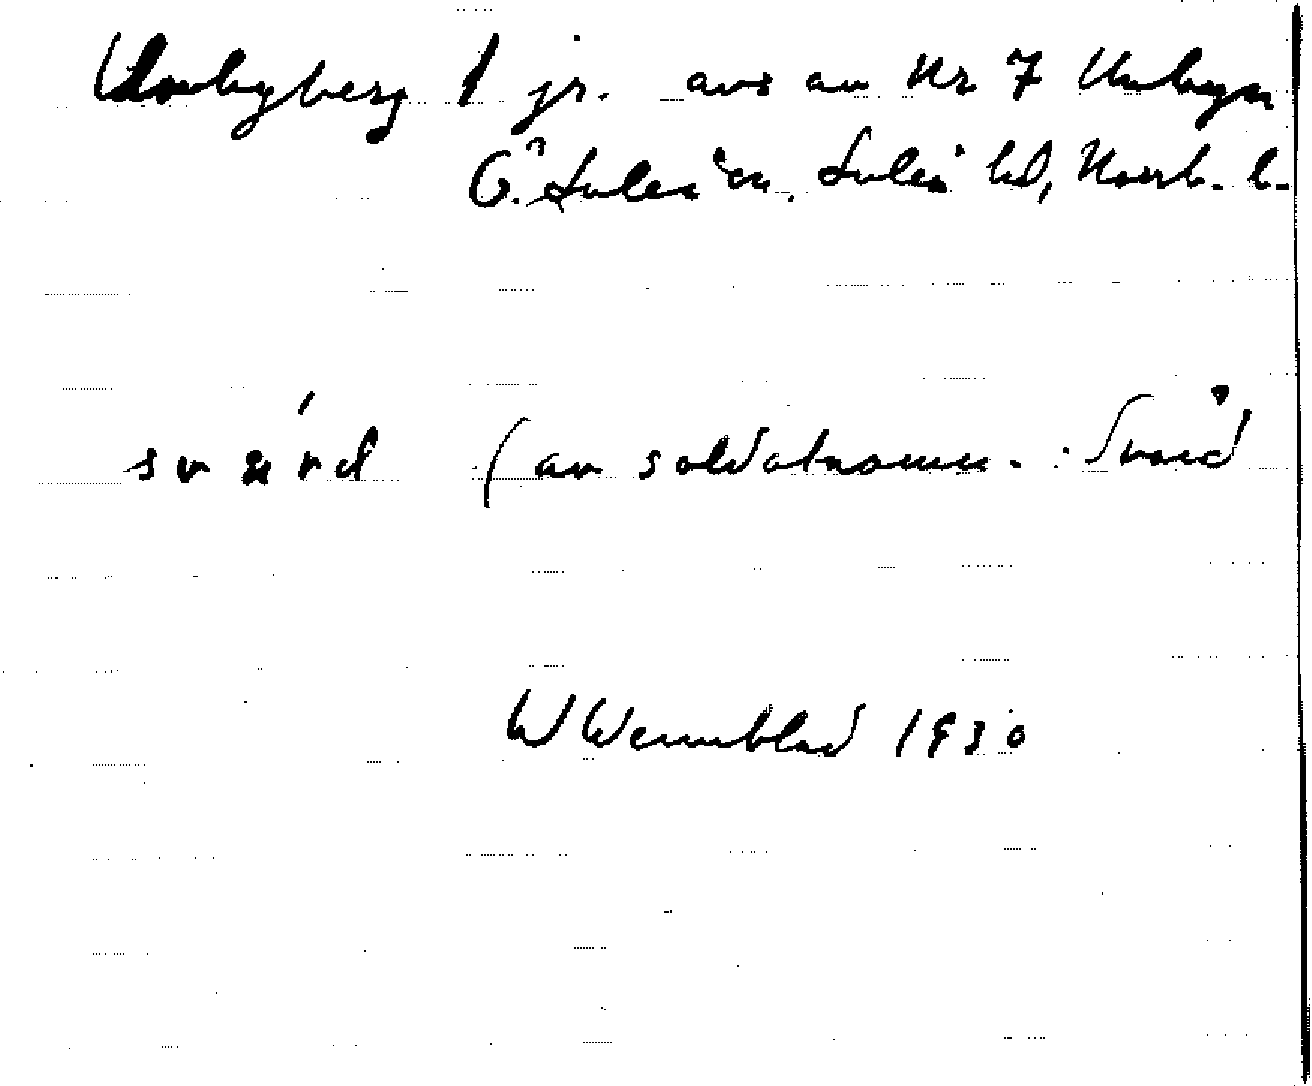 Unbyberg 1 jr. avs av Nr 7 Unbyn
G. Luleå sn. Luleå td, Norrb. l.
svä́rd (av soldatnamn. : Svärd
W Wennblad 1930